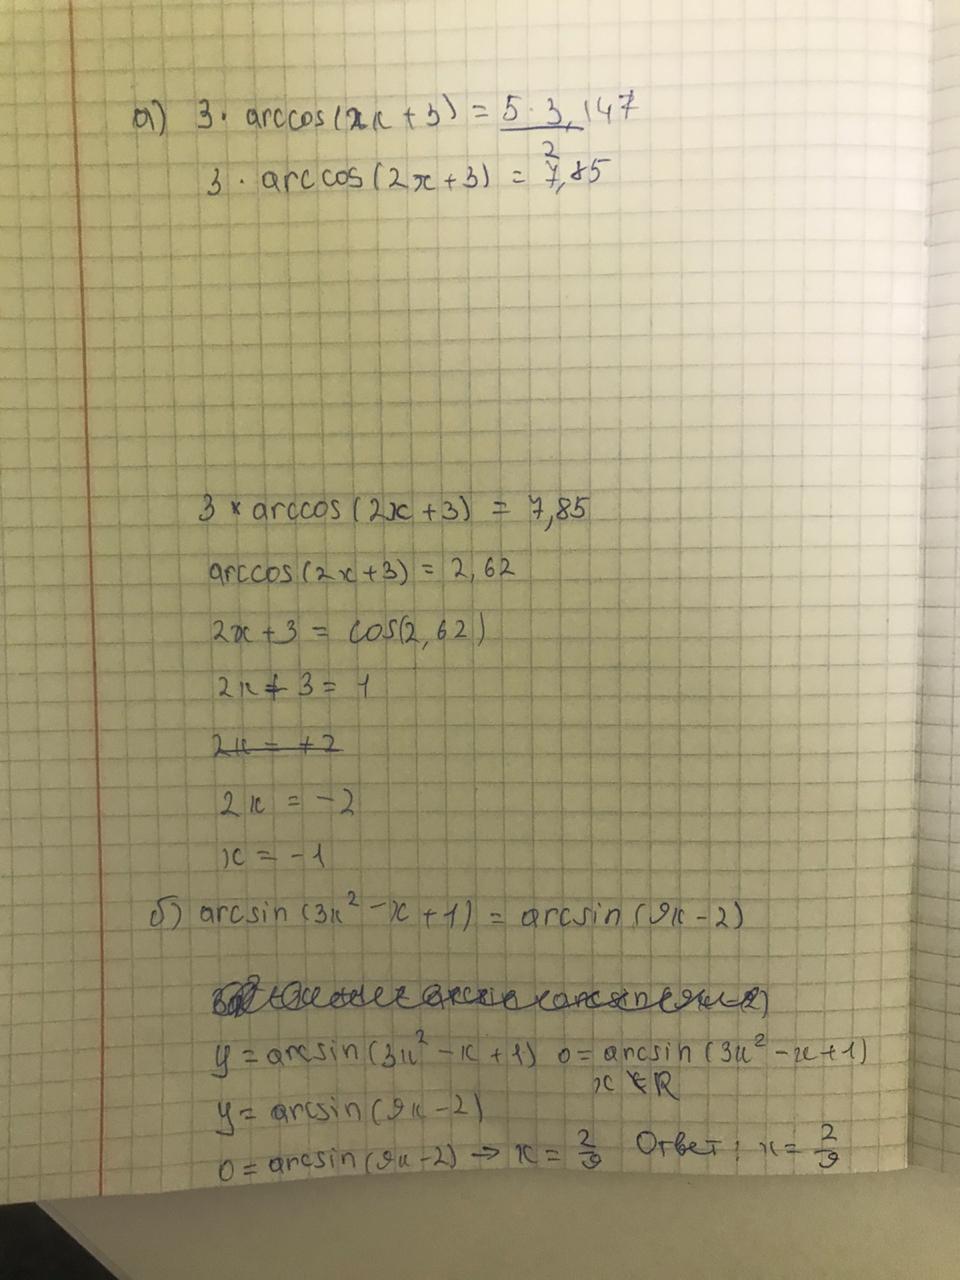 а) 3 · arccos(2x + 3) = 5 · 3,147 / 2
3 · arccos(2x + 3) = 7,85
3 * arccos(2x + 3) = 7,85
arccos(2x + 3) = 2,62
2x + 3 = cos(2,62)
2x + 3 = 1
2x = +2
2x = -2
x = -1
б) arcsin (3x² - x + 1) = arcsin (9x - 2)
y = arcsin(3x² - x + 1) 0 = arcsin (3x² - x + 1)
x ∈ R
y = arcsin(9x - 2)
0 = arcsin(9x - 2) → x = 2/9 Ответ: x = 2/9